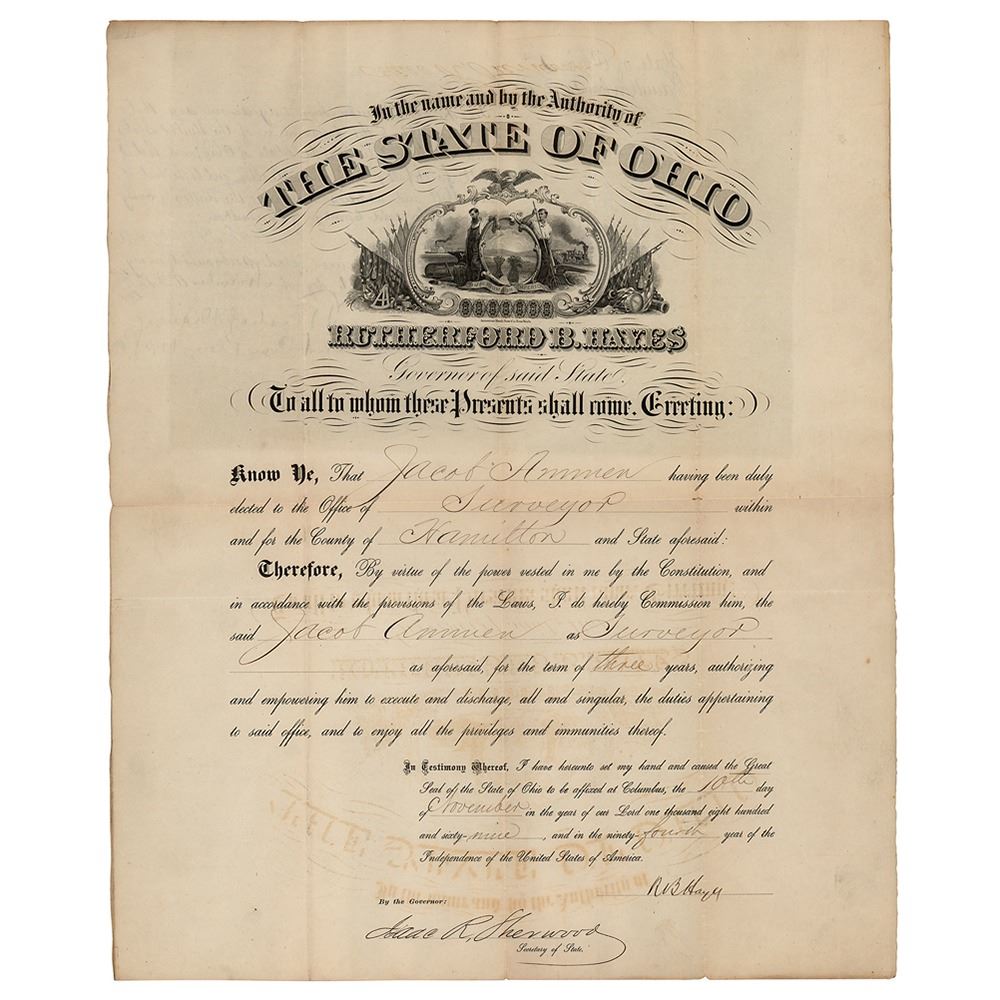 In the name and by the Authority of
THE STATE OF OHIO
RUTHERFORD B. HAYES
Governor of said State.
To all to whom these Presents shall come, Greeting:
Know Ye, That Jacob Ammen having been duly
elected to the Office of Surveyor within
and for the County of Hamilton and State aforesaid:
Therefore, By virtue of the power vested in me by the Constitution, and
in accordance with the provisions of the Laws, I do hereby Commission him, the
said Jacob Ammen as Surveyor
as aforesaid, for the term of three years, authorizing
and empowering him to execute and discharge, all and singular, the duties appertaining
to said office, and to enjoy all the privileges and immunities thereof.
In Testimony Whereof, I have hereunto set my hand and caused the Great
Seal of the State of Ohio to be affixed at Columbus, the 10th day
of November in the year of our Lord one thousand eight hundred
and sixty-nine, and in the ninety-fourth year of the
Independence of the United States of America.
R B Hayes
By the Governor:
Isaac R. Sherwood
Secretary of State.